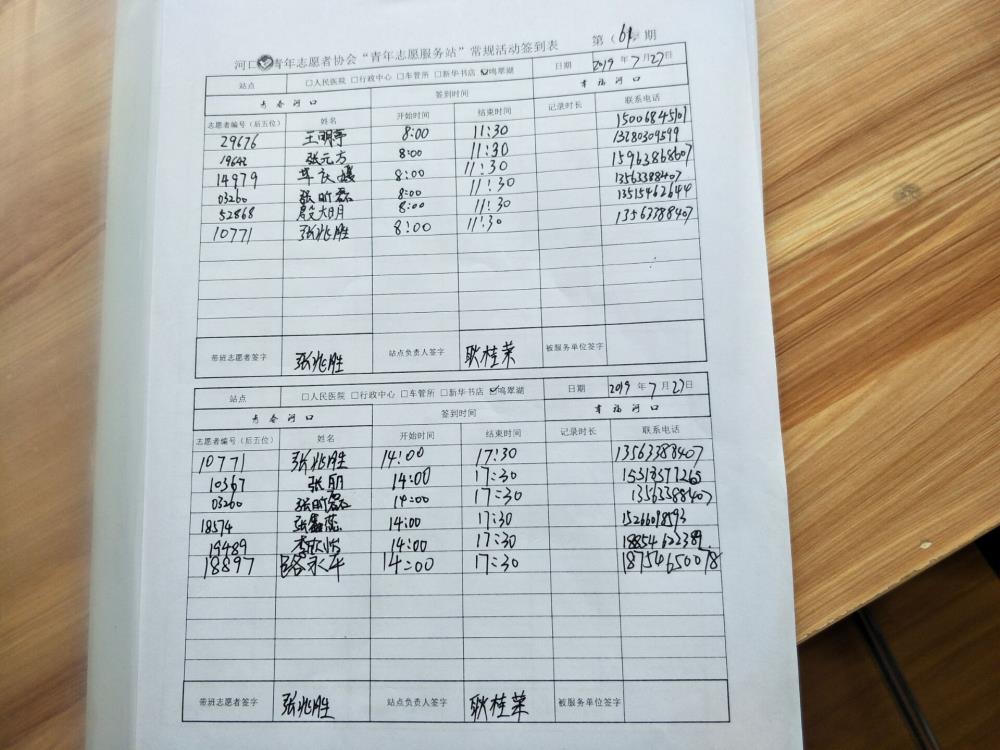 河口青年志愿者协会“青年志愿服务站”常规活动签到表 第（61）期
站点 □人民医院 □行政中心 □车管所 □新华书店 ☑鸣翠湖 日期 2019 年 7 月 27 日
青春河口 签到时间 幸福河口
志愿者编号（后五位） 姓名 开始时间 结束时间 记录时长 联系电话
29676 王明亭 8:00 11:30 15006845101
19642 张元方 8:00 11:30 13280309599
14979 8:00 11:30 15963868607
03260 张昕磊 8:00 11:30 13563388407
52868 殷大明 8:00 11:30 13515462644
10771 张兆胜 8:00 11:30 13563388407
带班志愿者签字 张兆胜 站点负责人签字 耿桂荣 被服务单位签字
站点 □人民医院 □行政中心 □车管所 □新华书店 ☑鸣翠湖 日期 2019 年 7 月 27 日
青春河口 签到时间 幸福河口
志愿者编号（后五位） 姓名 开始时间 结束时间 记录时长 联系电话
10771 张兆胜 14:00 17:30 13563388407
10367 张朋 14:00 17:30 15318577265
03260 张昕磊 14:00 17:30 13563388407
18574 张鑫蕊 14:00 17:30 15266098593
19489 李欣怡 14:00 17:30 18854622389
18897 永平 14:00 17:30 18754650078
带班志愿者签字 张兆胜 站点负责人签字 耿桂荣 被服务单位签字